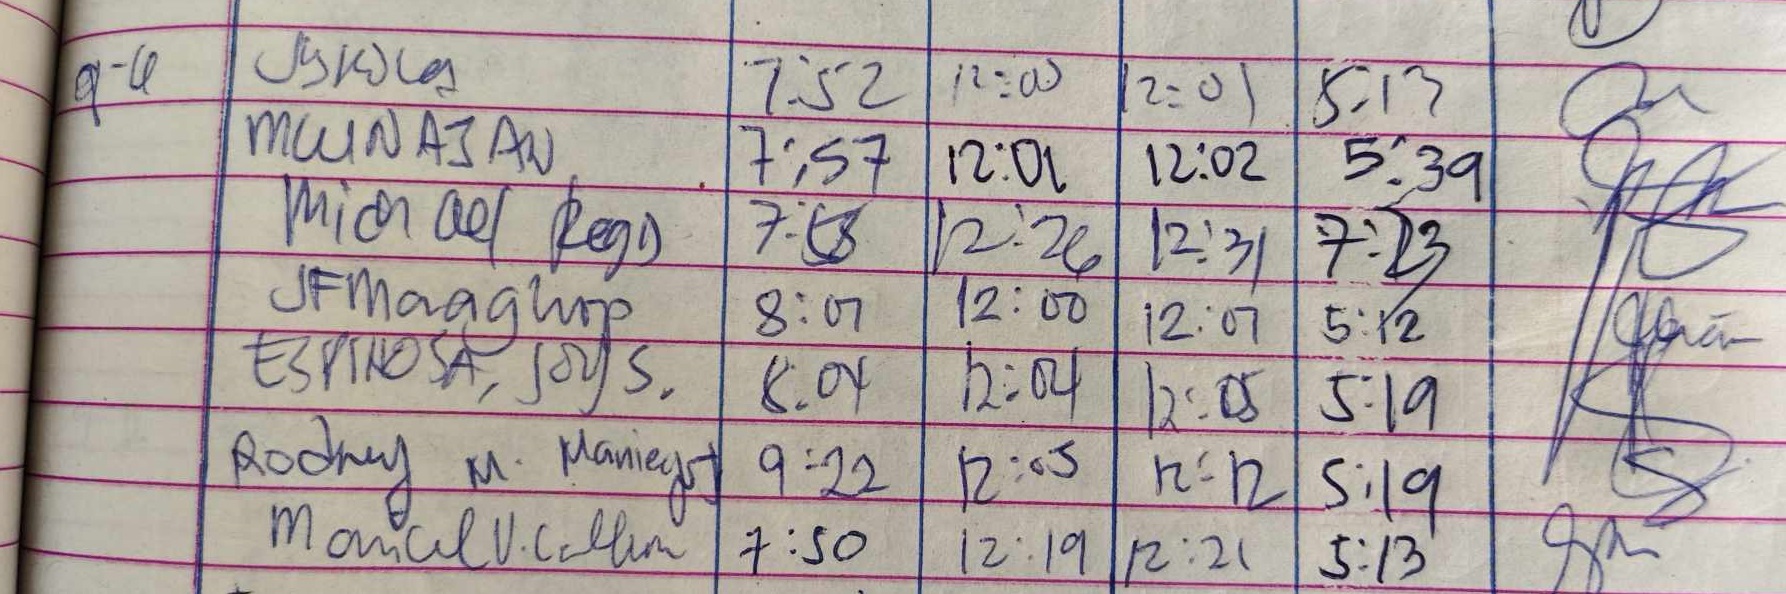 9-6 7:52 12:00 12:01 5:13
7:57 12:01 12:02 5:39
Michael 7:58 12:26 12:31 7:23
8:07 12:00 12:07 5:12
ESPINOSA, JOY S. 8:04 12:04 12:05 5:19
Rodney M. 9:22 12:05 12:12 5:19
Maricel V. 7:50 12:19 12:21 5:13